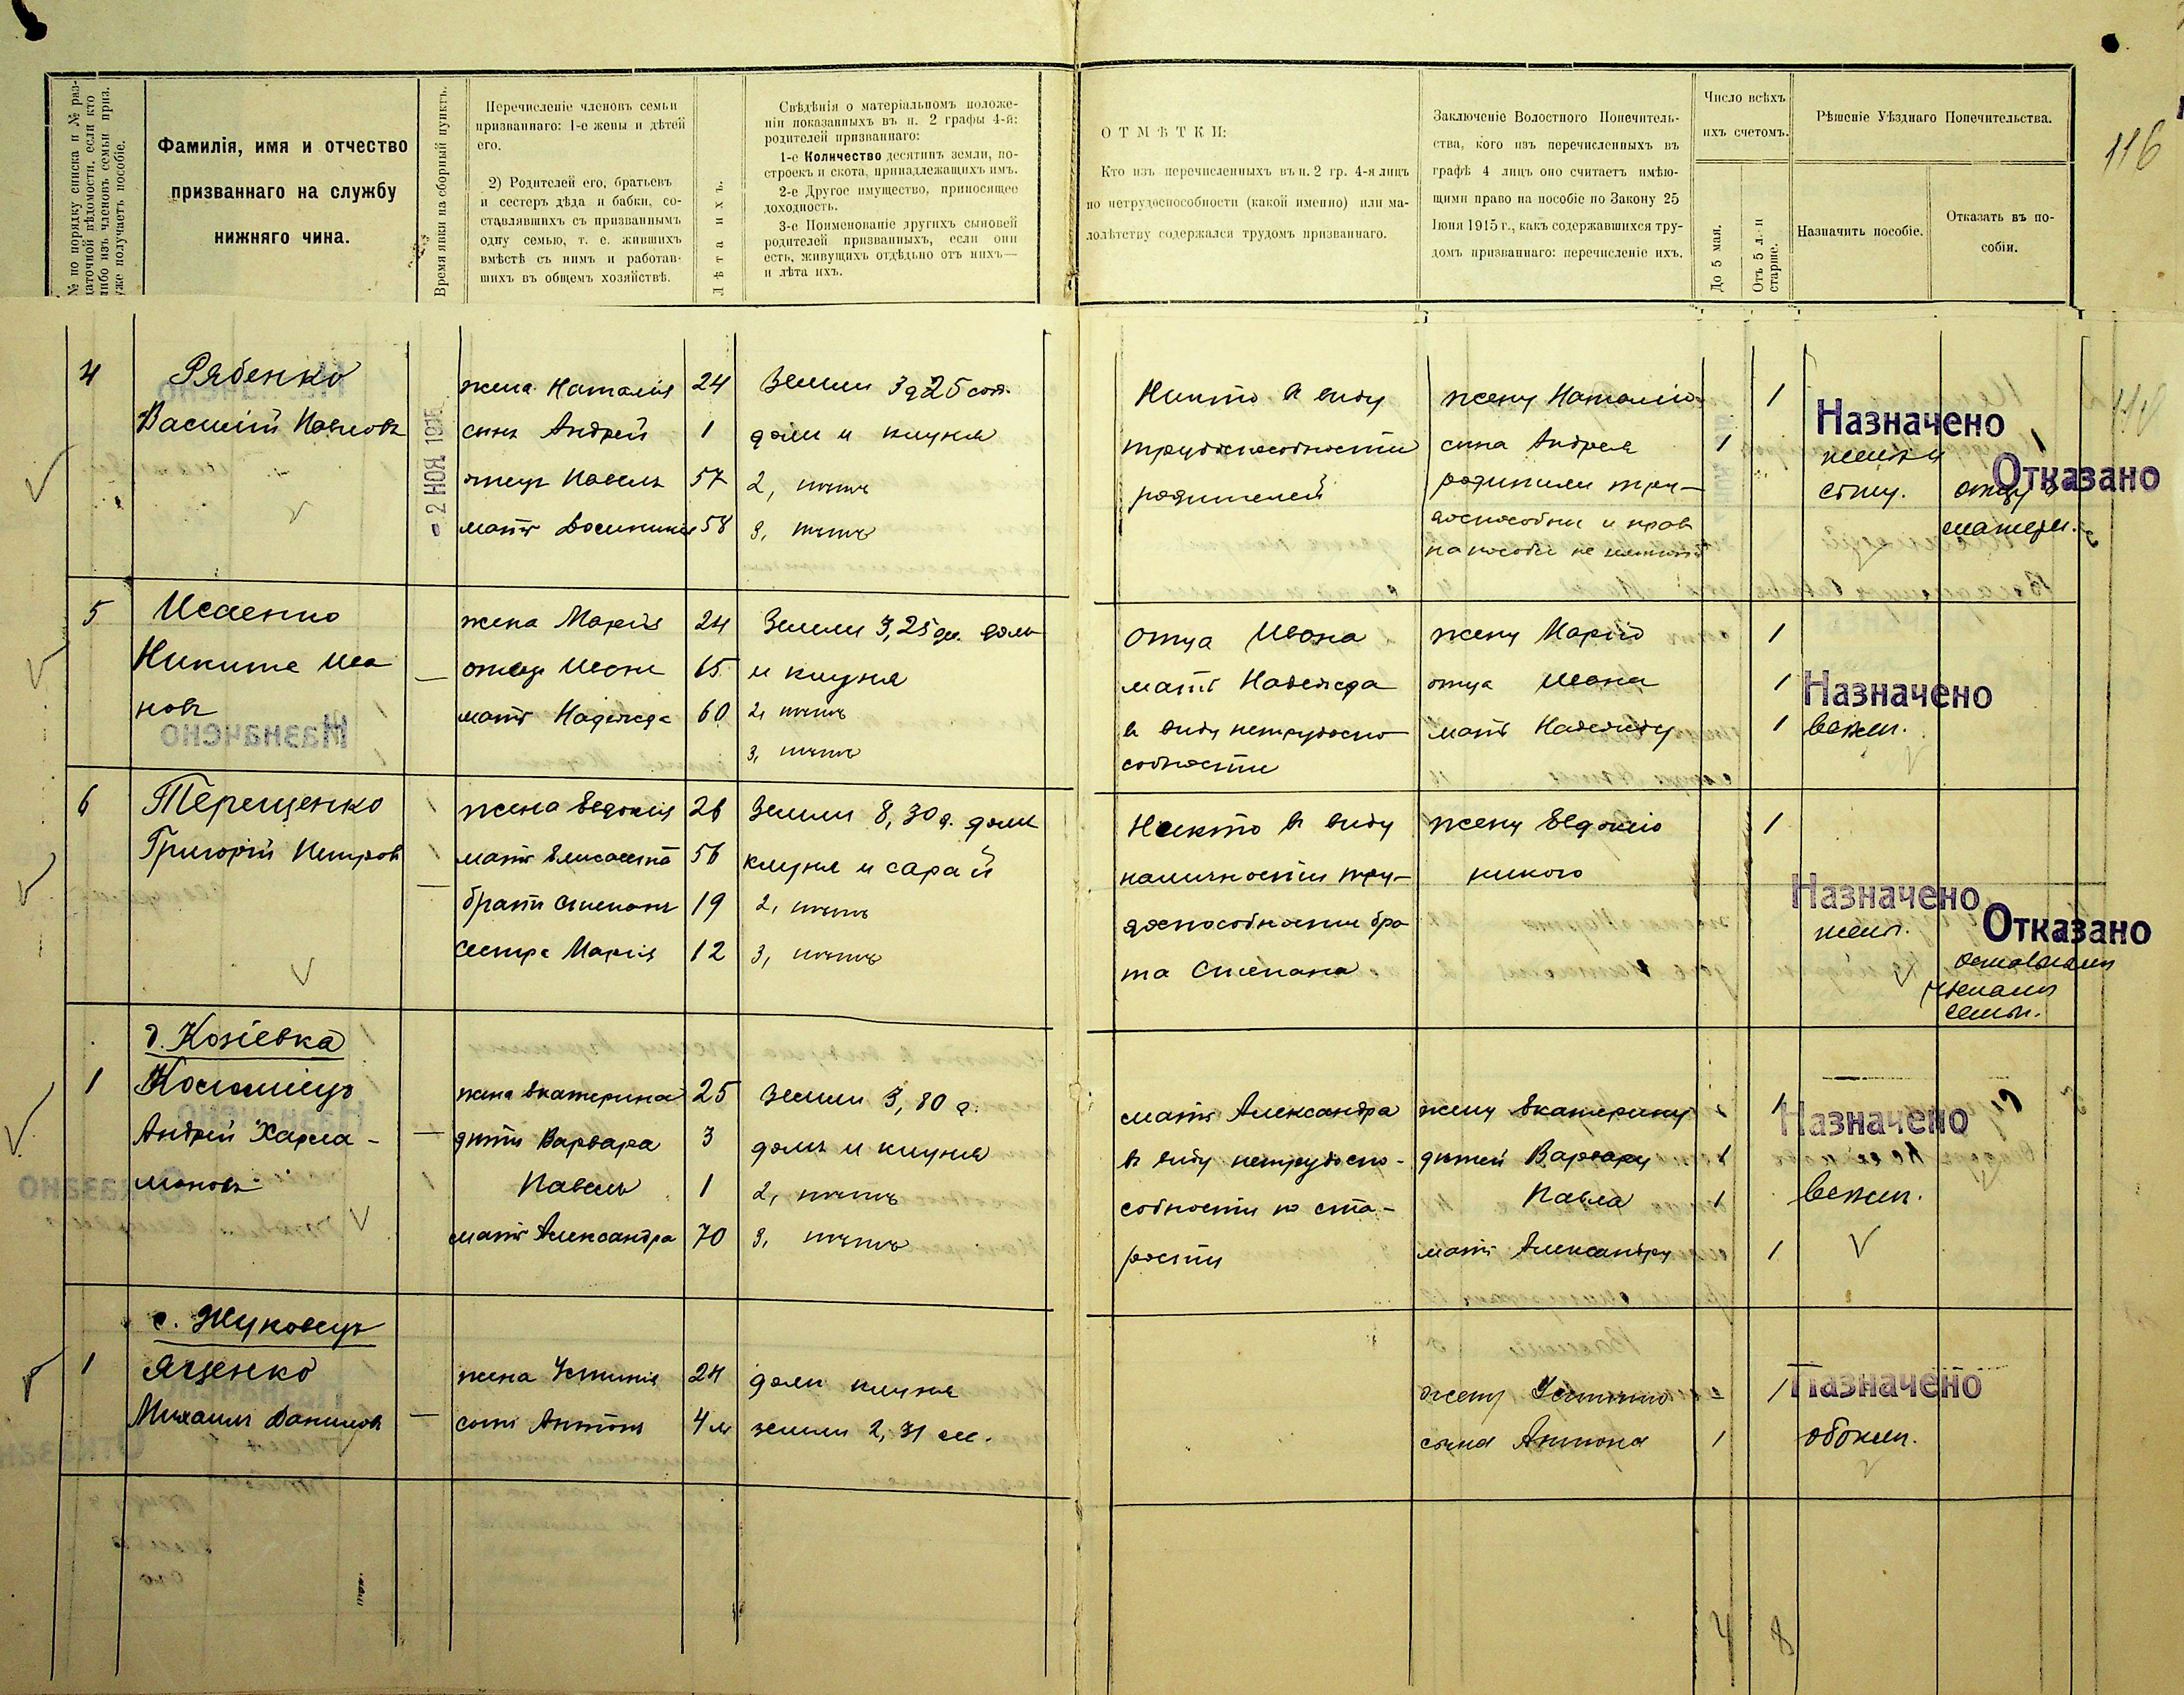 116
№ по порядку списка и № раз-
даточной вѣдомости, если кто
либо изъ членовъ семьи приз.
уже получаетъ пособіе.
Фамилія, имя и отчество
призваннаго на службу
нижняго чина.
Время явки на сборный пунктъ.
Перечисленіе членовъ семьи
призваннаго: 1-е жены и дѣтей
его.
2) Родителей его, братьевъ
и сестеръ дѣда и бабки, со-
ставлявшихъ съ призваннымъ
одну семью, т. е. жившихъ
вмѣстѣ съ нимъ и работав-
шихъ въ общемъ хозяйствѣ.
Лѣта ихъ.
Свѣдѣнія о матеріальномъ положе-
ніи показанныхъ въ п. 2 графы 4-й:
родителей призваннаго:
1-е Количество десятинъ земли, по-
строекъ и скота, принадлежащихъ имъ.
2-е Другое имущество, приносящее
доходность.
3-е Поименованіе другихъ сыновей
родителей призванныхъ, если они
есть, живущихъ отдѣльно отъ нихъ—
и лѣта ихъ.
ОТМѢТКИ:
Кто изъ перечисленныхъ въ п. 2 гр. 4-я лицъ
по нетрудоспособности (какой именно) или ма-
лолѣтству содержался трудомъ призваннаго.
Заключеніе Волостного Попечитель-
ства, кого изъ перечисленныхъ въ
графѣ 4 лицъ оно считаетъ имѣю-
щими право на пособіе по Закону 25
Іюня 1915 г., какъ содержавшихся тру-
домъ призваннаго: перечисленіе ихъ.
Число всѣхъ
ихъ счетомъ.
До 5 мая.
Отъ 5 л. и
старше.
Рѣшеніе Уѣзднаго Попечительства.
Назначить пособіе.
Отказать въ по-
собіи.
4
Рябенко
Василій Павловъ
- 2 НОЯ 1915
жена Наталія 24
сынъ Андрей 1
отецъ Павелъ 57
мать 58
Земли 3 д 25 сот.
домъ и клуня
2, нѣтъ
3, нѣтъ
Никто в виду
трудоспособности
родителей
жену Наталію 1
сына Андрея 1
родители тру-
доспособны и прав
на пособіе не имѣютъ
Назначено
женѣ и
сыну.
Отказано
отцу и
матери.
5
Исаенко
Никита Ива
новъ
жена Марія 24
отецъ Иванъ 65
мать Надежда 60
Земли 3,25 де. домъ
и клуня
2, нѣтъ
3, нѣтъ
отца Ивана
мать Надежда
в виду нетрудоспо
собности
жену Марію 1
отца Ивана 1
мать Надежду 1
Назначено
всѣмъ.
6
Терещенко
Григорій Петровъ
жена Евдокія 26
мать Елисавета 56
братъ Степанъ 19
сестра Марія 12
Земли 8,30 д. домъ
клуня и сарай
2, нѣтъ
3, нѣтъ
Никто в виду
наличности тру-
доспособности бра
та Степана
жену Евдокію 1
никого
Назначено
женѣ.
Отказано
остальнымъ
членамъ
семьи.
д. Козіевка
1
Коломіецъ
Андрей Харла-
мповъ
жена Екатерина 25
дѣти Варвара 3
Павелъ 1
мать Александра 70
Земли 3,80 д.
домъ и клуня
2, нѣтъ
3, нѣтъ
мать Александра
въ виду нетрудоспо-
собности по ста-
рости
жену Екатерину 1
дѣтей Варвару 1
Павла 1
мать Александру 1
Назначено
всѣмъ.
с. Жуковецъ
1
Ященко
Михаилъ Даниловъ
жена Устинія 24
сынъ Антонъ 4 м
домъ клуня
земли 2,31 се.
жену Устинію 1
сына Антона 1
Назначено
обоимъ.
4 8